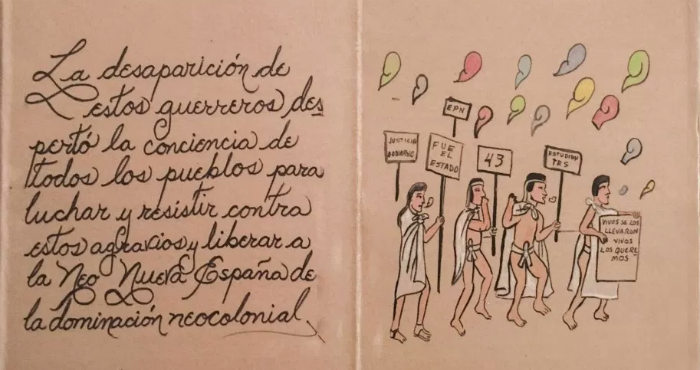 La desaparición de
estos guerreros des
pertó la conciencia de
todos los pueblos para
luchar y resistir contra
estos agravios y liberar a
la Neo Nueva España de
la dominación neocolonial.
EPN
JUSTICIA
FUE
EL
ESTADO
43
ESTUDIAN
TES
VIVOS SE LOS
LLEVARON
VIVOS
LOS QUERE
MOS